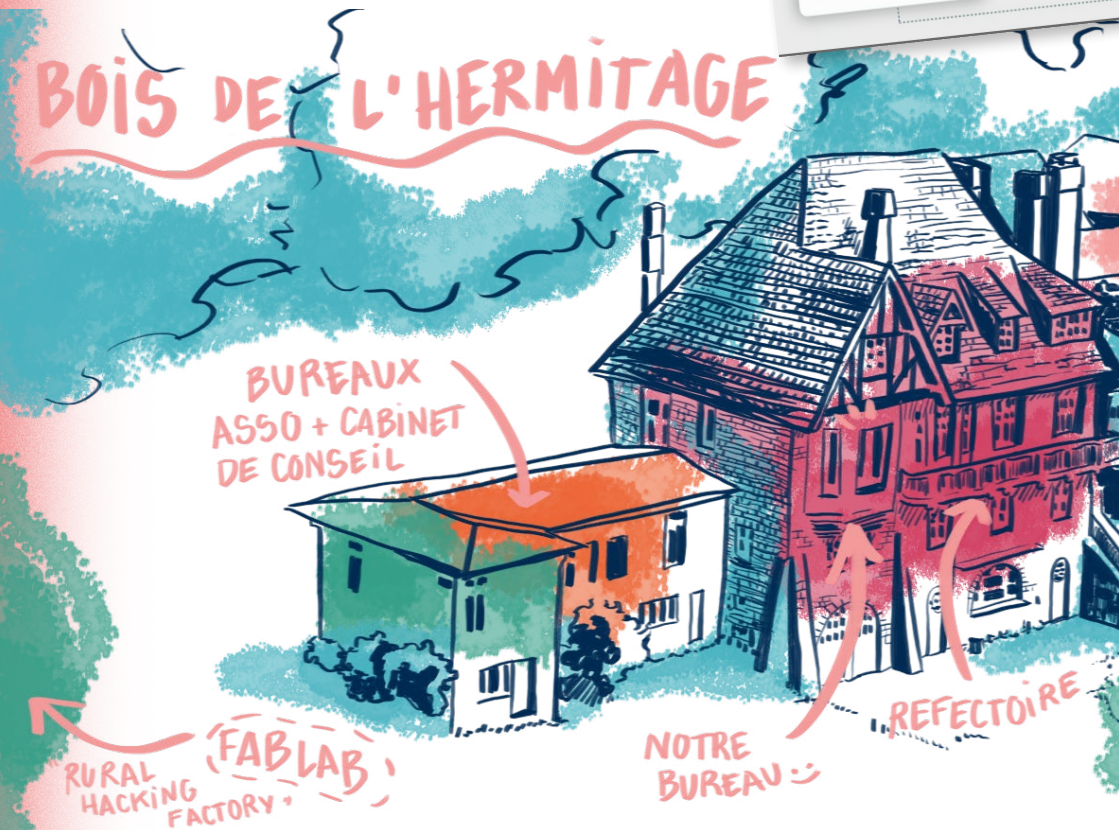 BOIS DE L'HERMITAGE
BUREAUX
ASSO + CABINET
DE CONSEIL
FABLAB
"RURAL
HACKING
FACTORY"
NOTRE
BUREAU :)
REFECTOIRE